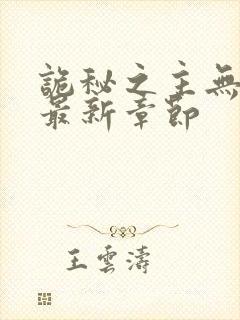 詭秘之主無
最新章節
王雲濤